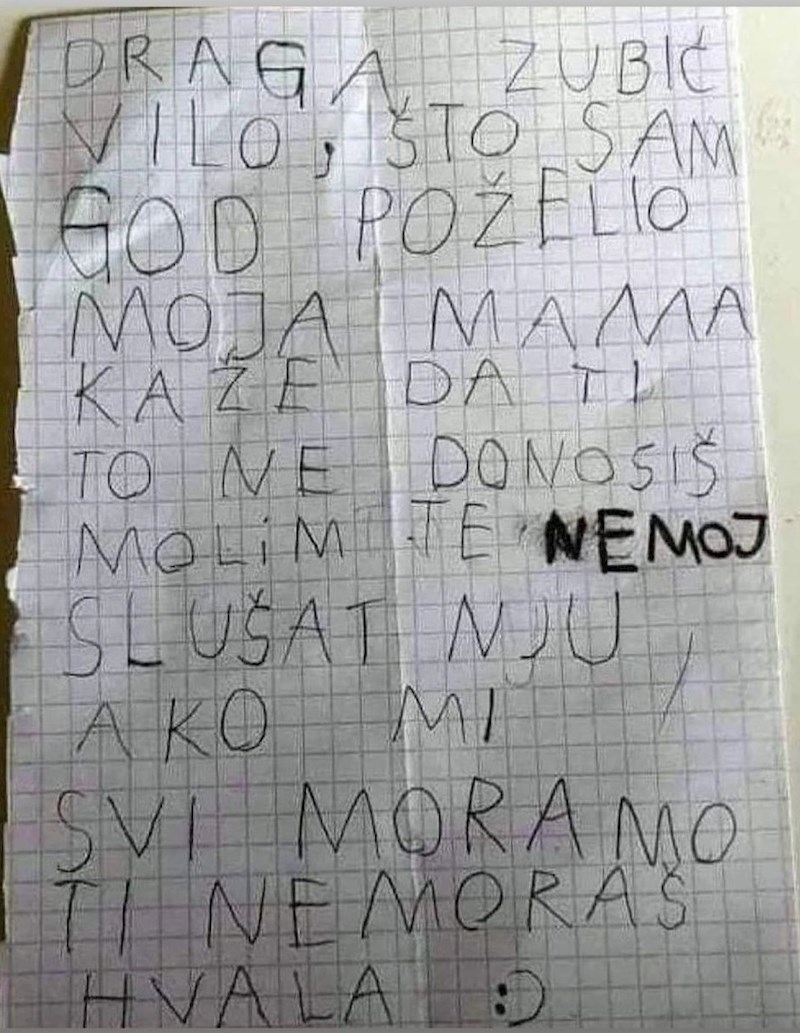 DRAGA ZUBIĆ
VILO, ŠTO SAM
GOD POŽELIO
MOJA MAMA
KAŽE DA TI
TO NE DONOSIŠ
MOLiM TE NEMOJ
SLUŠAT NJU,
AKO MI
SVI MORAMO
TI NEMORAŠ
HVALA :)